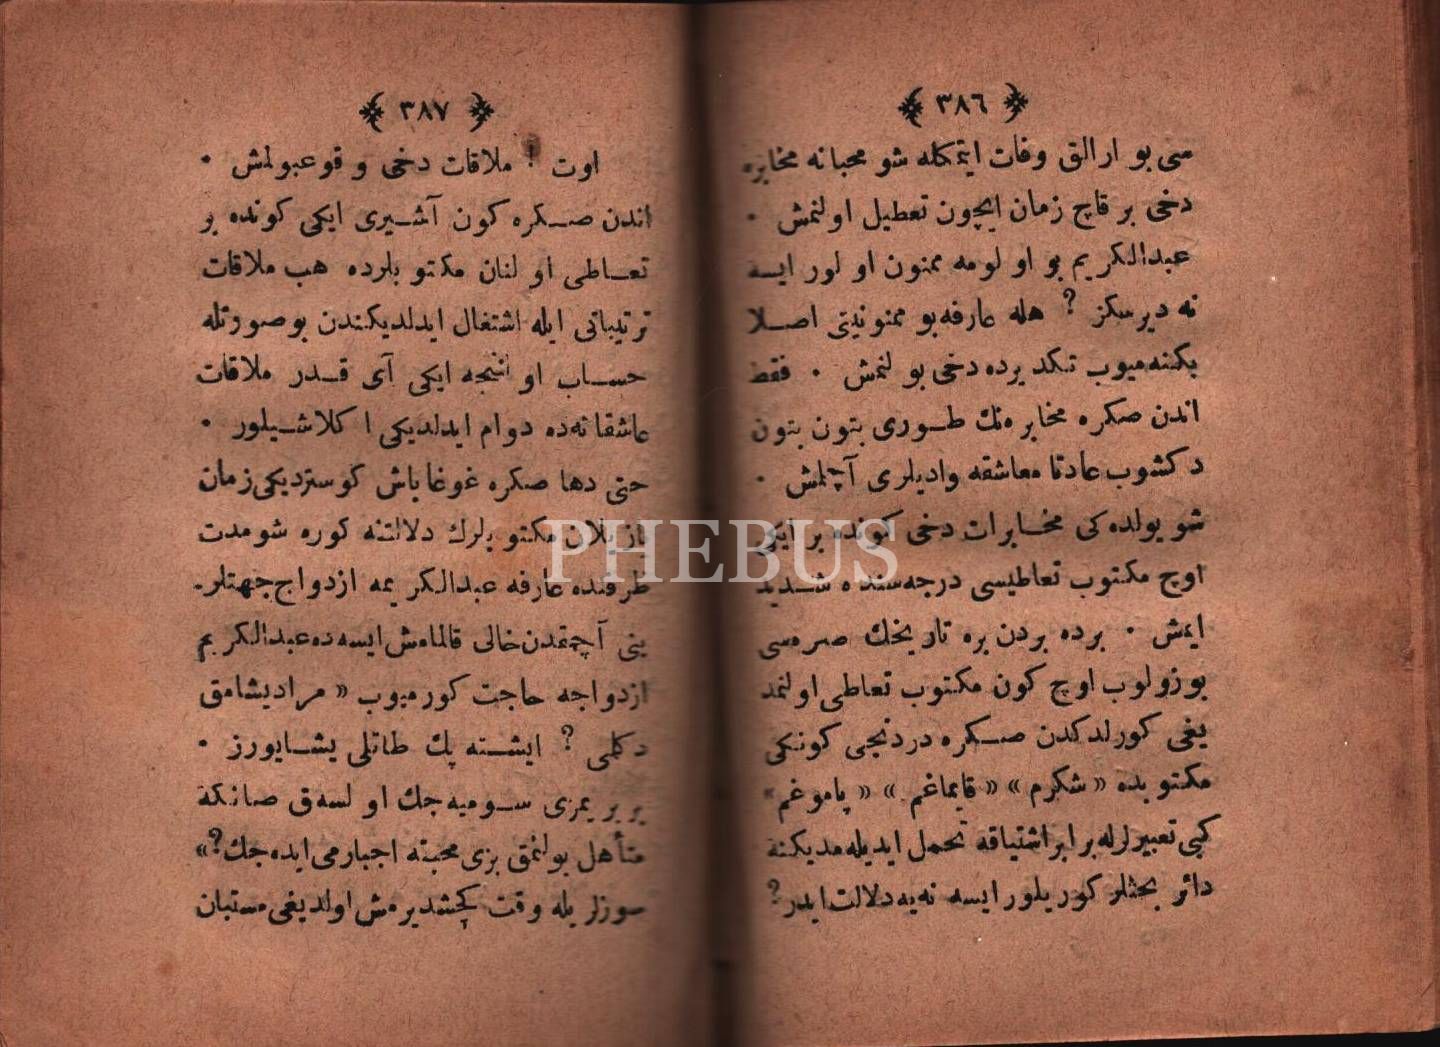 ٣٨٦
سی بو ارالق وفات ایتمکله شو محبانه مخابره
دخی بر قاچ زمان ایچون تعطیل اولنمش .
عبدالکریم بو اولومه ممنون اولور ایسه
نه دیرسکز ؟ هله عارفه بو ممنونیتی اصلا
بکنه‌میوب تکدیرده دخی بولنمش . فقط
اندن صکره مخابره‌نك طوری بتون بتون
دکشوب عادتا معاشقه وادیلری آچلمش .
شو یولده‌کی مخابرات دخی کونده بر ایکی
اوچ مکتوب تعاطیسی درجه‌سنده شدید
ایمش . برده بردن بره تاریخك صره‌سی
بوزولوب اوچ کون مکتوب تعاطی اولنمد
یغی کورلدکدن صکره دردنجی کونکی
مکتوبده « شکرم » « قایماغم » « پاموغم »
کبی تعبیرلرله برابر اشتیاقه تحمل ایدیله‌مدیکنه
دائر بحثلر کوریلور ایسه نه‌یه دلالت ایدر ؟
٣٨٧
اوت ! ملاقات دخی وقوعبولمش .
اندن صکره کون آشیری ایکی کونده بر
تعاطی اولنان مکتوبلرده هب ملاقات
ترتیباتی ایله اشتغال ایدلدیکندن بو صورتله
حساب اولنجه ایکی آی قدر ملاقات
عاشقانه‌ده دوام ایدلدیکی اکلاشیلور .
حتی دها صکره غوغا باش کوستردیکی زمان
یازیلان مکتوبلرك دلالتنه کوره شو مدت
ظرفنده عارفه عبدالکریمه ازدواج جهتلر۔
ینی آچمقدن خالی قالمامش ایسه‌ده عبدالکریم
ازدواجه حاجت کورمیوب « مراد یشامق
دکلمی ؟ ایشته پك طاتلی یشایورز .
بربریمزی سومیه‌جك اولسه‌ق صانکه
متأهل بولنمق بزی محبته اجبارمی ایده‌جك ؟ »
سوزلریله وقت کچشدیرمش اولدیغی مستبان
PHEBUS